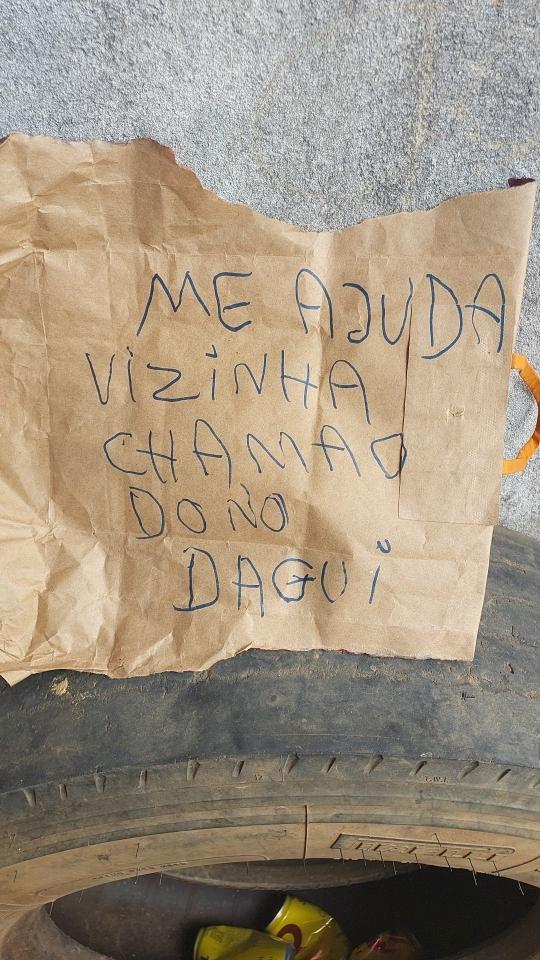 ME AJUDA
ViZiNHA
CHAMAO
DOÑO
DAGUi
T.W.I.